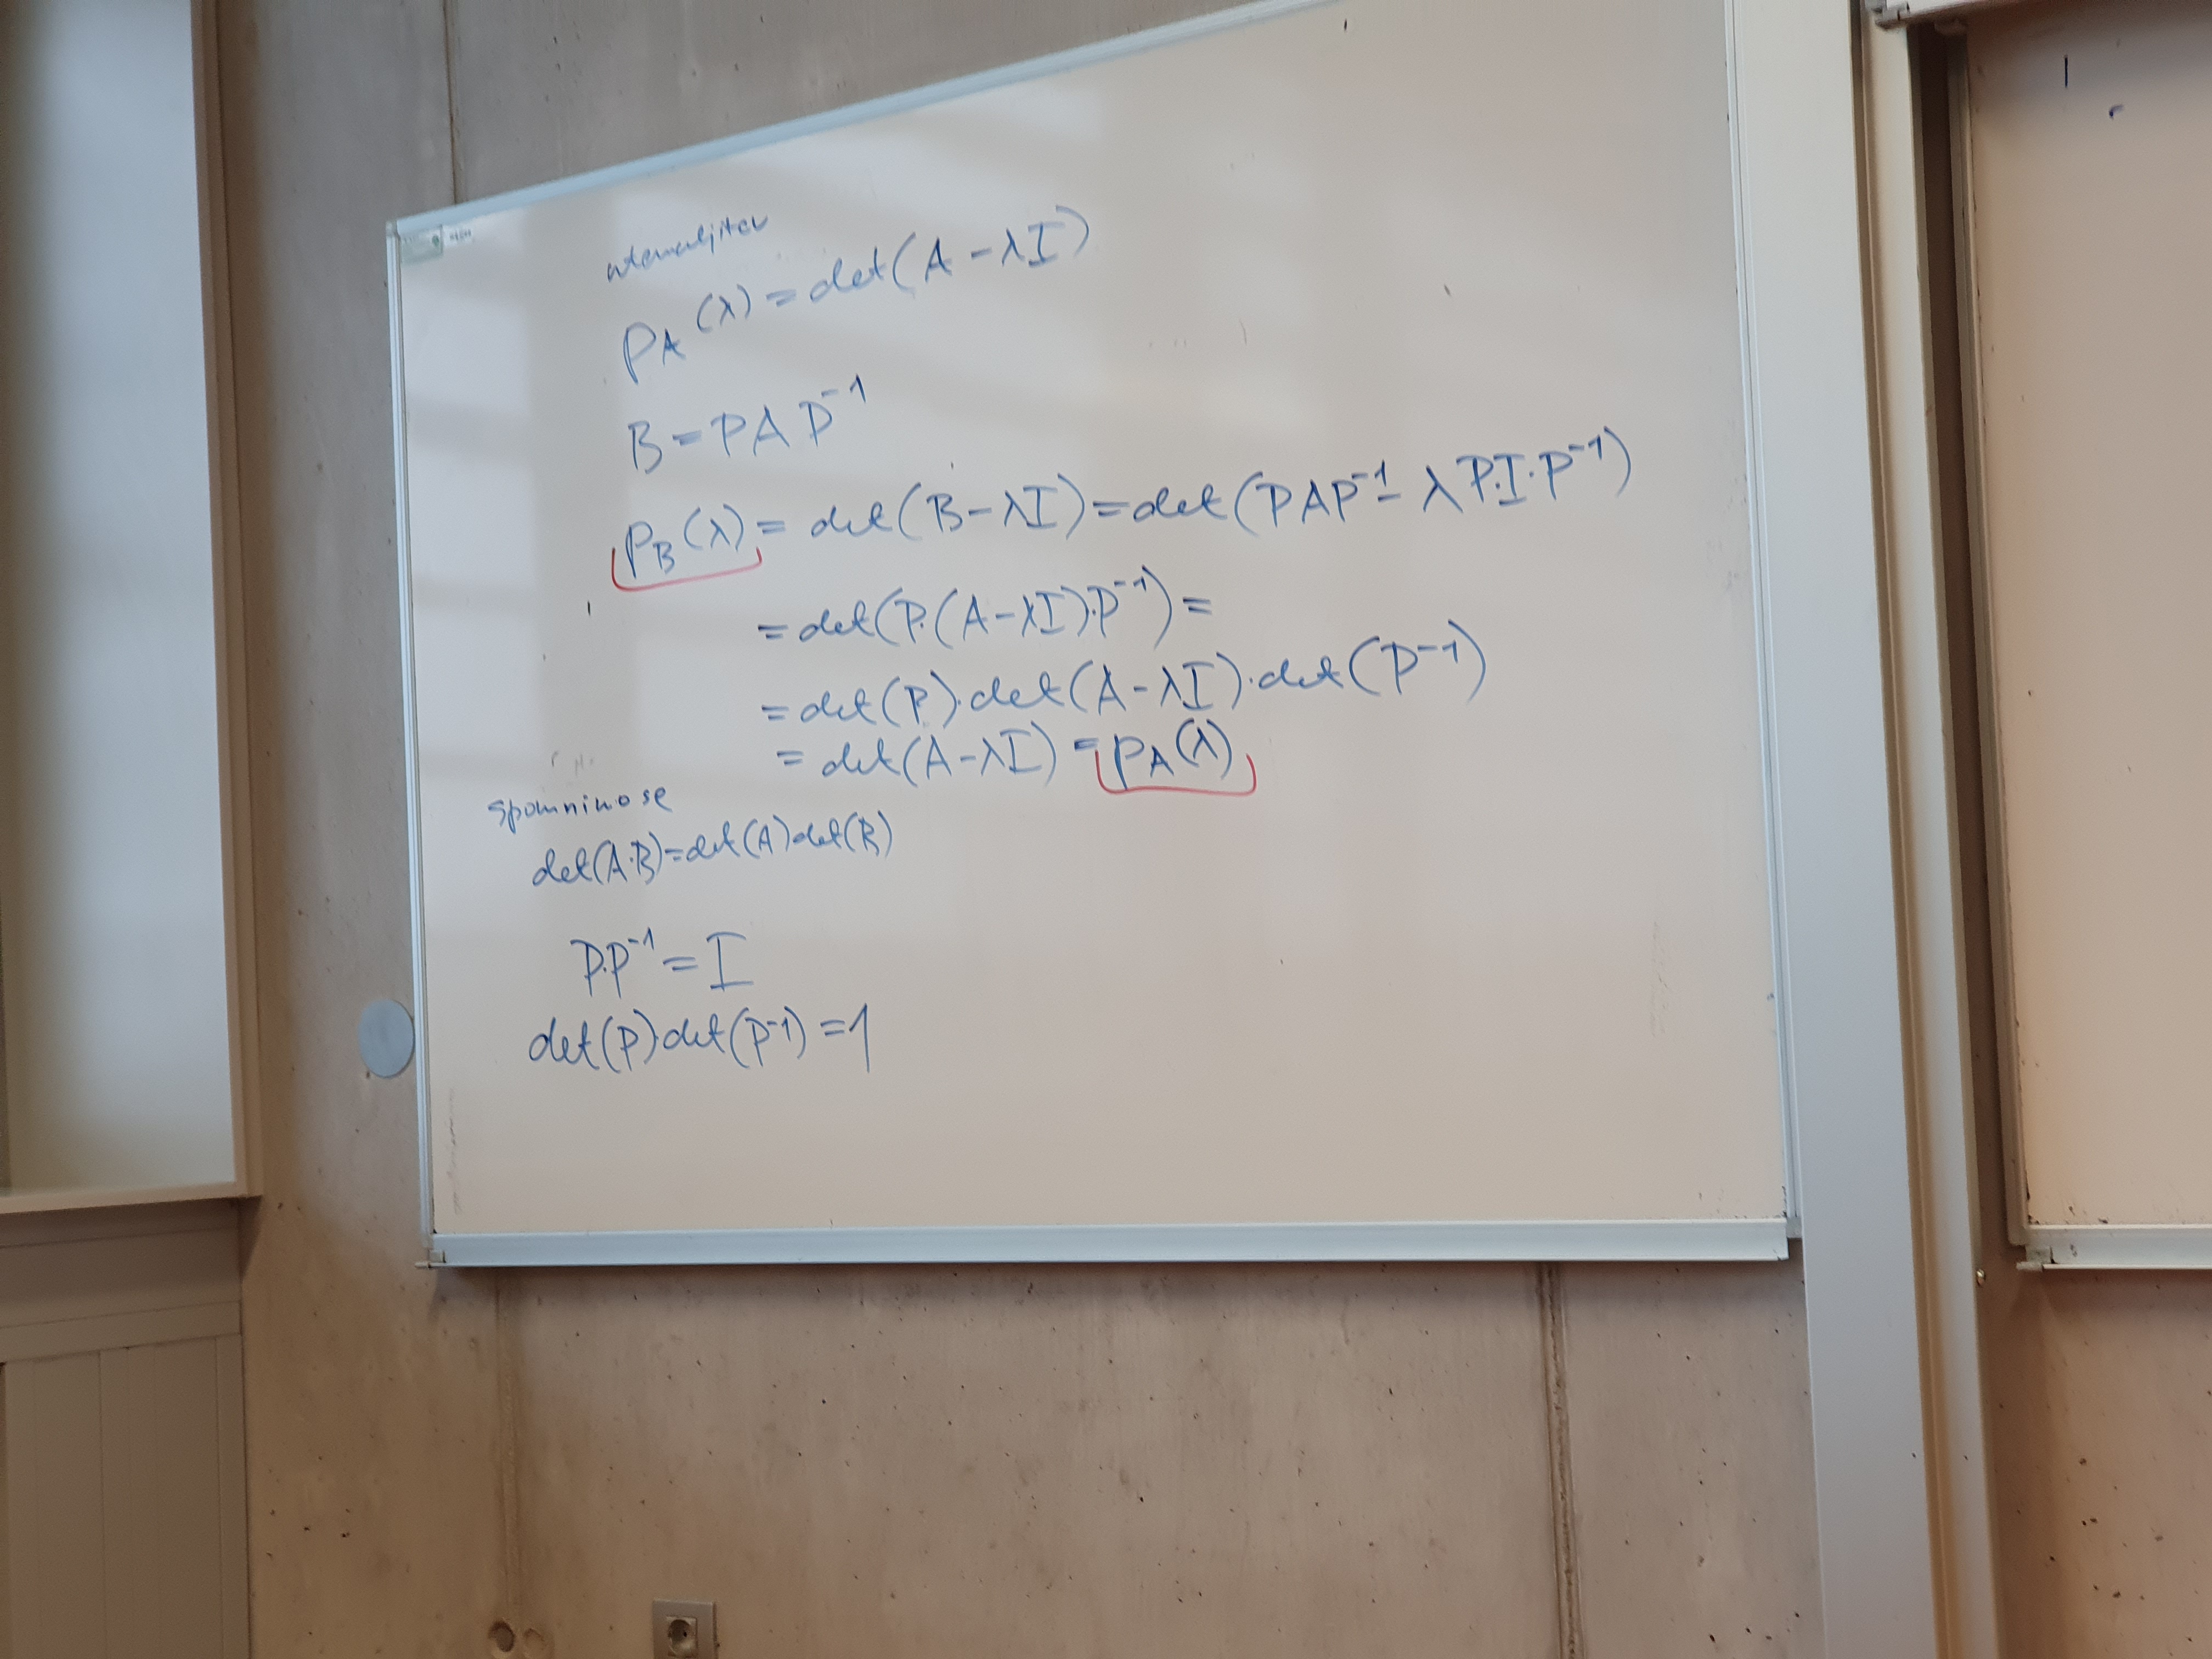 utemeljitev
p_A(λ) = det(A - λI)
B = PAP⁻¹
p_B(λ) = det(B - λI) = det(PAP⁻¹ - λP·I·P⁻¹)
= det(P·(A - λI)·P⁻¹) =
= det(P)·det(A - λI)·det(P⁻¹)
= det(A - λI) = p_A(λ)
spomnimo se
det(A·B) = det(A)det(B)
P·P⁻¹ = I
det(P)·det(P⁻¹) = 1